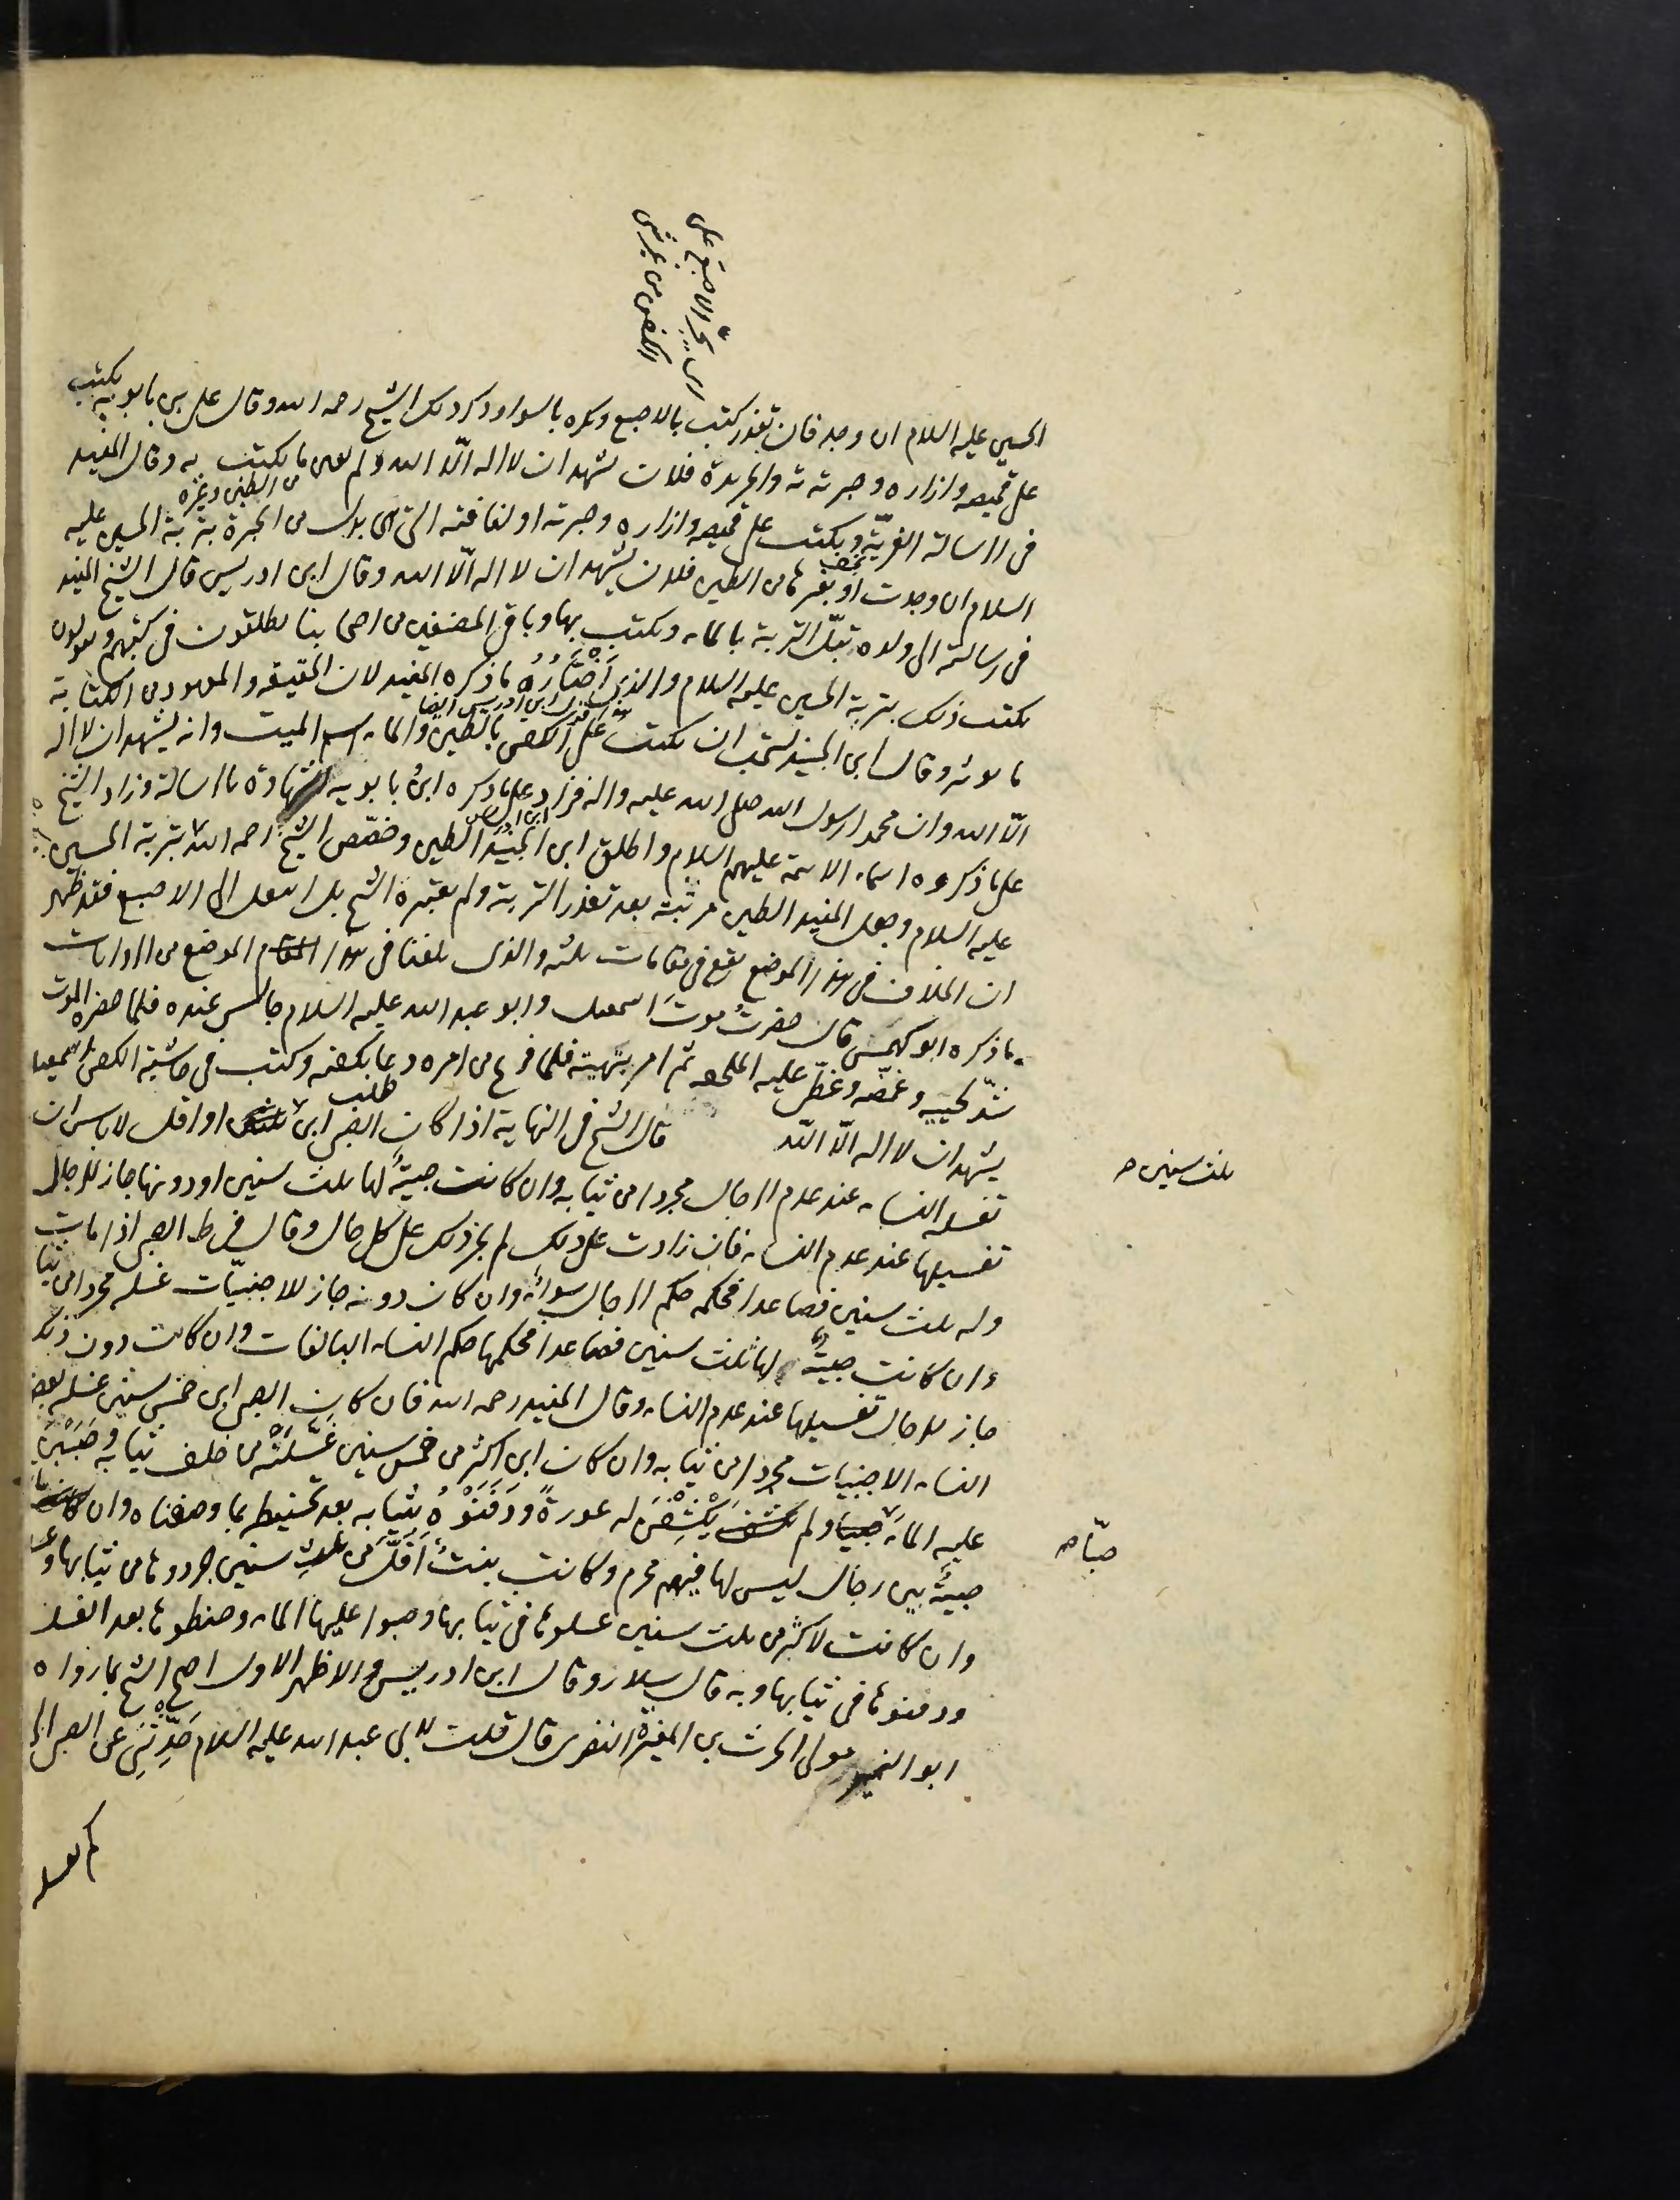 اى يجر الاصبع على
الكفن من غير شى
الحسين عليه السلام ان وجد فان تعذر كتب بالاصبع ويكره بالسواد وذكر ذلك الشيخ رحمه الله وقال على بن بابويه يكتب
على قميصه وازاره وحبرته والجريدة فلان يشهد ان لا اله الا الله ولم يعين ما يكتب به وقال المفيد
من الطين وغيره
فى الرسالة الغريّة ويكتب على قميصه وازاره وحبرته او لفافته التى هى بدل من الحبرة بتربة الحسين عليه
السلام ان وجدت او بغيرها من الطين فلان يشهد ان لا اله الا الله وقال ابن ادريس قال الشيخ المفيد
فى رسالته الى ولده تبلّ التربة بالماء ويكتب بها وباقى المصنفين من اصحابنا يطلقون فى كتبهم ويقولون
يكتب ذلك بتربة الحسين عليه السلام والذى اختاره ما ذكره المفيد لان الحقيقة والمعهود من الكتابة
قول ابن ادريس ايضا
ما بوشر وقال ابن الجنيد يستحب ان يكتب على الكفن بالطين والماء اسم الميت وانه يشهد ان لا اله
الا الله وان محمدا رسول الله صلى الله عليه واله فزاد على ما ذكره ابن بابويه الشهادة بالرسالة وزاد الشيخ
على ما ذكروه اسماء الائمة عليهم السلام واطلق ابن الجنيد الطين وخصّص الشيخ رحمه الله بتربة الحسين
عليه السلام وجعل المفيد الطين مرتبة بعد تعذر التربة ولم يعتبره الشيخ بل انتقل الى الاصبع فقد ظهر
ان الخلاف فى هذا الموضع يقع فى مقامات ثلثة والذى بلغنا فى هذا المقام الموضع من الروايات
ما ذكره ابو كهمس قال حضرتُ موتَ اسمعيل وابو عبد الله عليه السلام جالس عنده فلما حضره الموت
شدّ لحييه وغمّضه وغطّى عليه الملحفة ثم امر بتهيئته فلما فرغ من امره دعا بكفنه وكتب فى حاشية الكفن اسمعيل
يشهد ان لا اله الا الله مطلب قال الشيخ فى النهاية اذا كان الصبى ابن ثلث او اقل لا باس ان
ثلث سنين صح
تغسله النساء عند عدم الرجال مجردا من ثيابه وان كانت صبيّة لها ثلث سنين او دونها جاز للرجال
تغسيلها عند عدم النساء فان زادت على ذلك لم يجز ذلك على كل حال وقال فى ط الصبى اذا مات
وله ثلث سنين فصاعدا فحكمه حكم الرجال سواء وان كان دونه جاز للاجنبيّات غسله مجردا من ثيابه
وان كانت صبيّة لها ثلث سنين فصاعدا فحكمها حكم النساء البالغات وان كانت دون ذلك
جاز للرجال تغسيلها عند عدم النساء وقال المفيد رحمه الله فان كان الصبى ابن خمس سنين غسله بعض
النساء الاجنبيات مجردا من ثيابه وان كان ابن اكثر من خمس سنين غسّلنه من خلف ثيابه وصببن
عليه الماء صبيا ولم يكشف يكشفن له عورة ودفنّوه بثيابه بعد تحنيطه بما وصفناه وان ماتت
صبّا صح
صبيّة بين رجال ليس لها فيهم محرم وكانت بنت اقلّ من ثلث سنين جردوها من ثيابها
وان كانت لاكثر من ثلث سنين غسلوها فى ثيابها وصبوا عليها الماء وحنطوها بعد الغسل
ودفنوها فى ثيابها وبه قال سلار وقال ابن ادريس والاظهر الاول احتج الشيخ بما رواه
ابو النمير مولى الحرث بن المغيرة النضرى قال قلت لابى عبد الله عليه السلام حدّثنى عن الصبى الى
كم تغسله